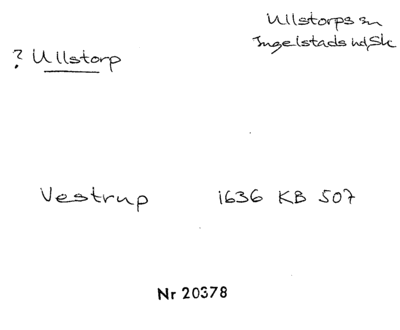 Ullstorps sn
Ingelstads hd, Sk
? Ullstorp
Vestrup 1636 KB 507
Nr 20378